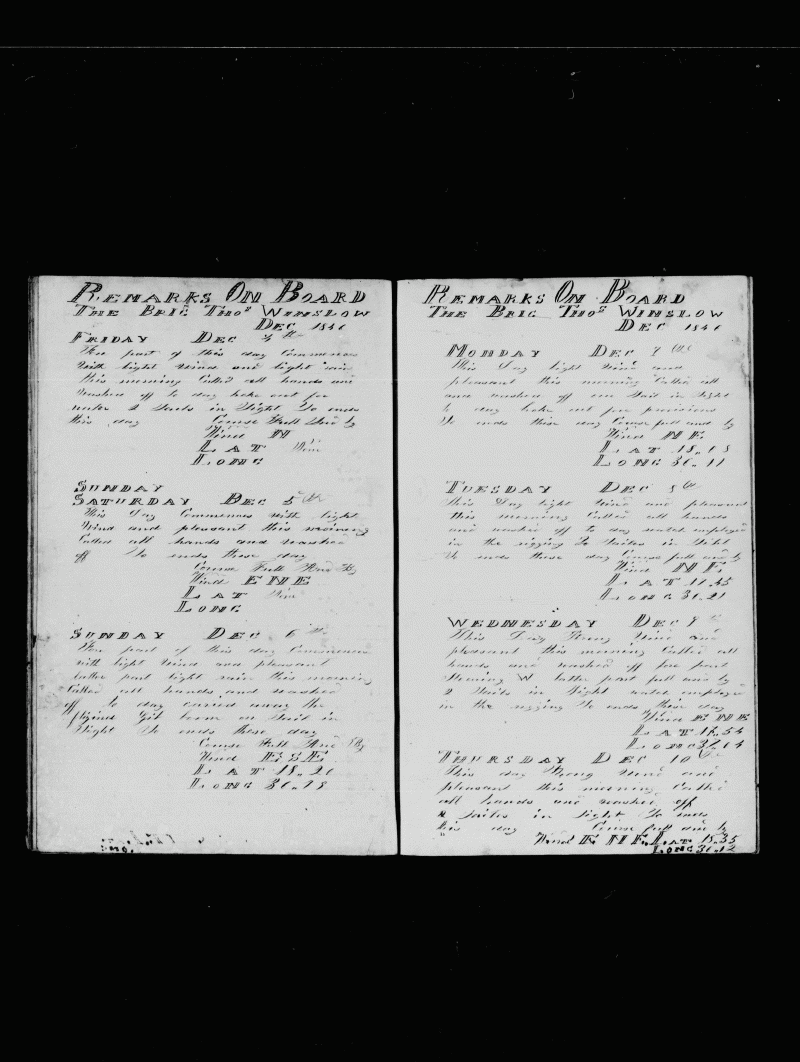 Remarks On Board
The Brig Thos Winslow
Dec 1846
Friday Dec 4th
Fore part of this day Commences
With light Wind and light rain
this morning Called all hands and
washed off to day broke out for
water 2 Sails in Sight So ends
this day Course Full And by
Wind N
Lat
Long
Sunday
Saturday Dec 5th
This Day Commences with light
Wind and pleasant this morning
Called all hands and washed
off So ends these day
Course Full And By
Wind ENE
Lat
Long
Sunday Dec 6th
Fore part of this day Commences
with light Wind and pleasant
latter part light rain this morning
Called all hands and washed
off to day carried away the
flying Gib boom on Sail in
Sight So ends these day
Course Full And By
Wind ESE
Lat 18.20
Long 36.28
Remarks On Board
The Brig Thos Winslow
Dec 1846
Monday Dec 7th
This Day light Wind and
pleasant this morning Called all
and washed off on Sail in Sight
to day broke out for provisions
So ends these day Course full and by
Wind NE
Lat 18.18
Long 36.11
Tuesday Dec 8th
This Day light Wind and pleasant
this morning Called all hands
and washed off to day watch employed
in the rigging 2 Sailes in Sight
So ends these day Course full and by
Wind NE
Lat
Long
Wednesday Dec
This Day Strong Wind and
pleasant this morning Called all
hands and washed off fore part
Steering W latter part full and by
2 Sails in Sight watch employed
in the rigging So ends these day
Wind ENE
Lat 16.54
Long
Thursday Dec 10
This day Strong Wind and
pleasant this morning Called
all hands and washed off
sailes in Sight So ends
this day Course full and by
Wind ENE Lat 15.35
Long